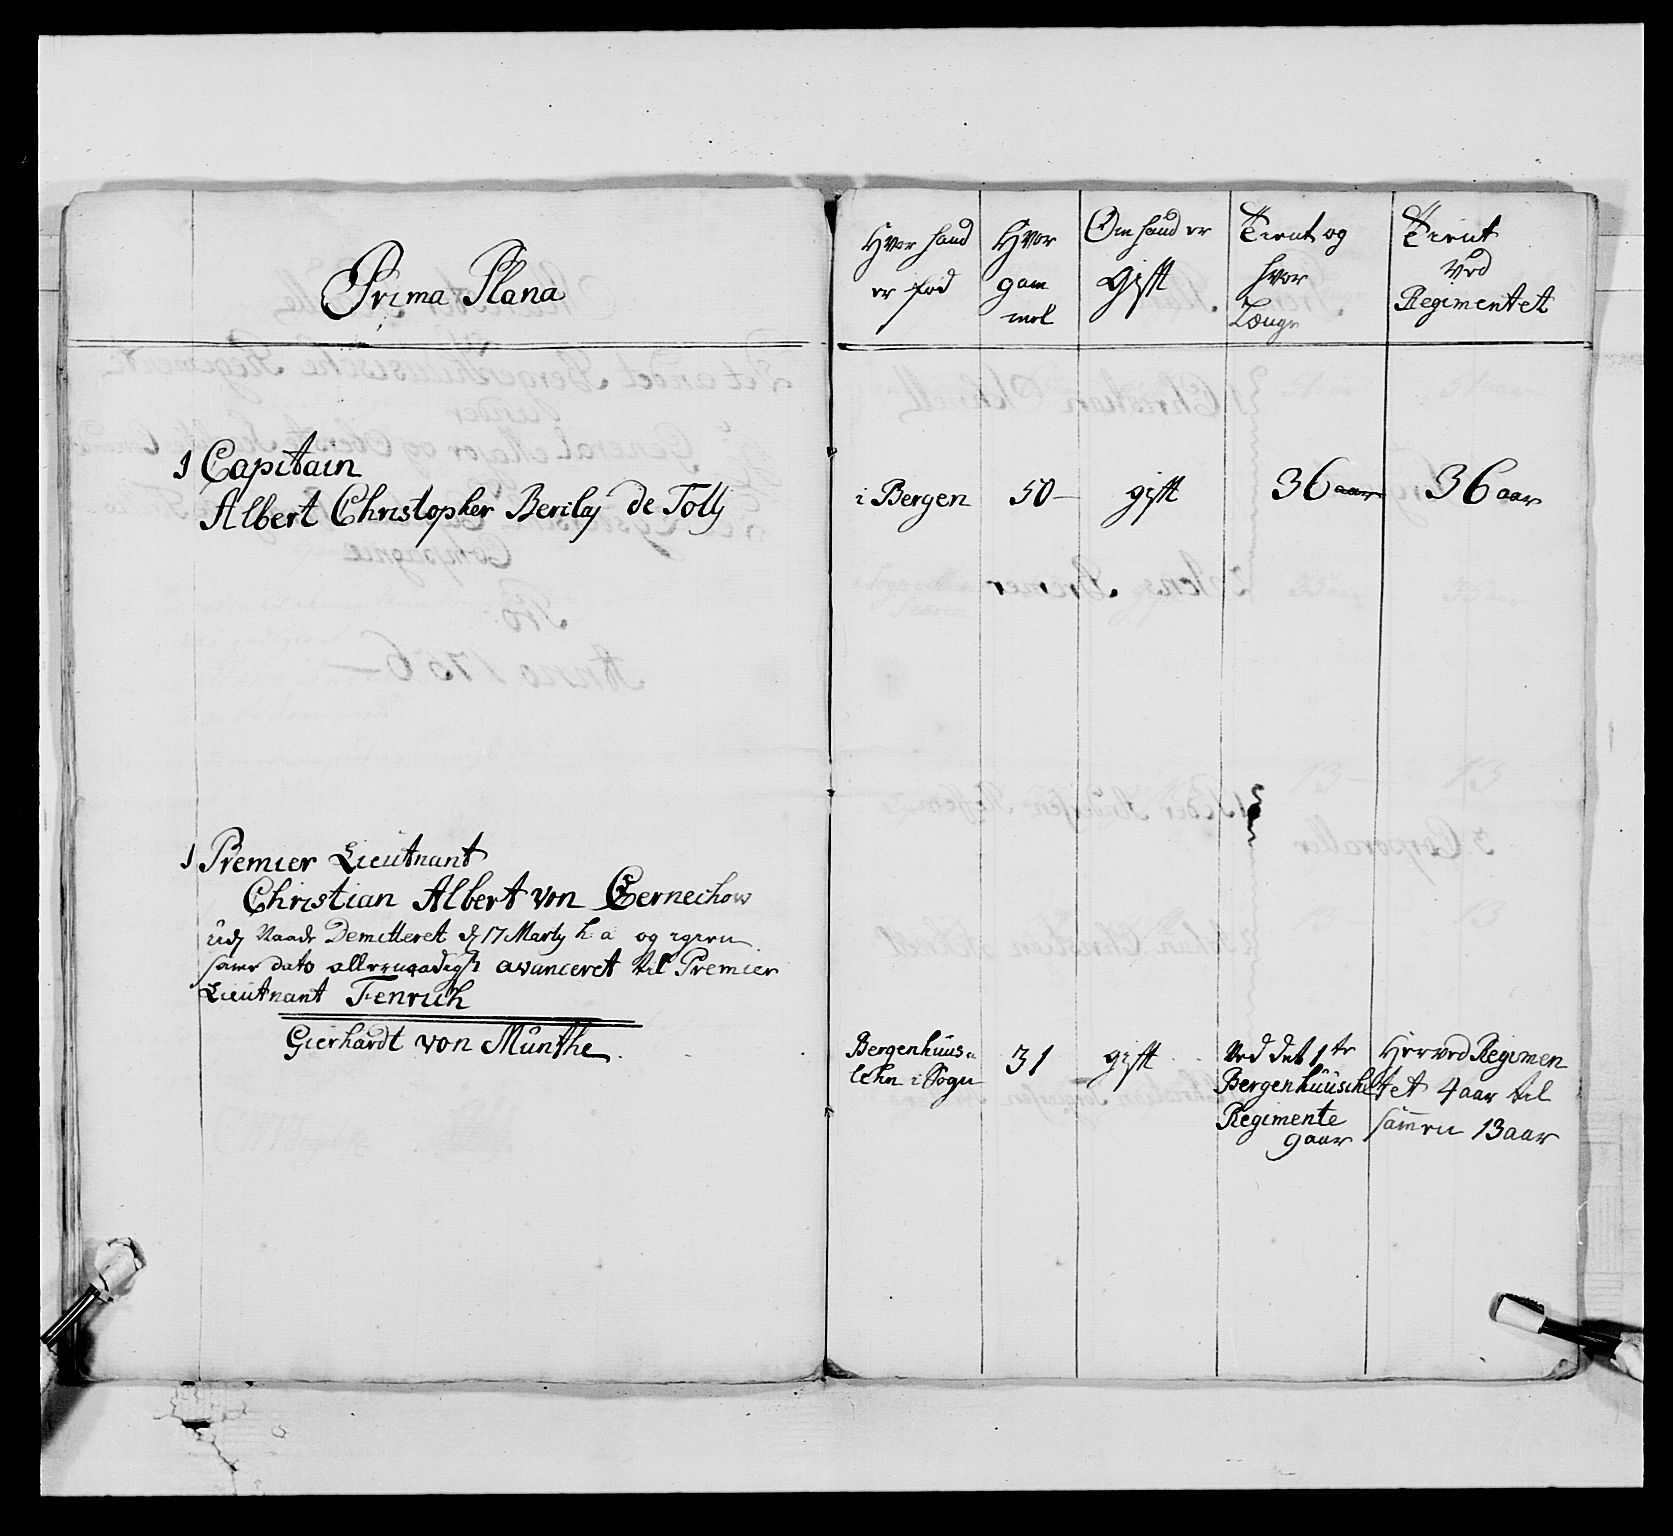 Prima Plana
Hvor hand
er fød
Hvor
gam
mel
Om hand er
gift
Tient og
hvor
Længe
Tient
ved
Regimentet
1 Capitain
Albert Christopher Berclay de Tolly
i Bergen
50
gift
36 aar
36 aar
1 Premier Lieutnant
Christian Albert von Czernechow
udj Naade Demitteret d 17 Marty h: a og igien
samme dato allernaadigst avanceret til Premier
Lieutnant Fenrich
Gierhardt von Munthe
Bergenhuus
lehn i Sogn
31
gift
Ved det 1te
Bergenhuusche
Regimente
9 aar
Her ved Regimen
tet 4 aar til
sammen 13 aar